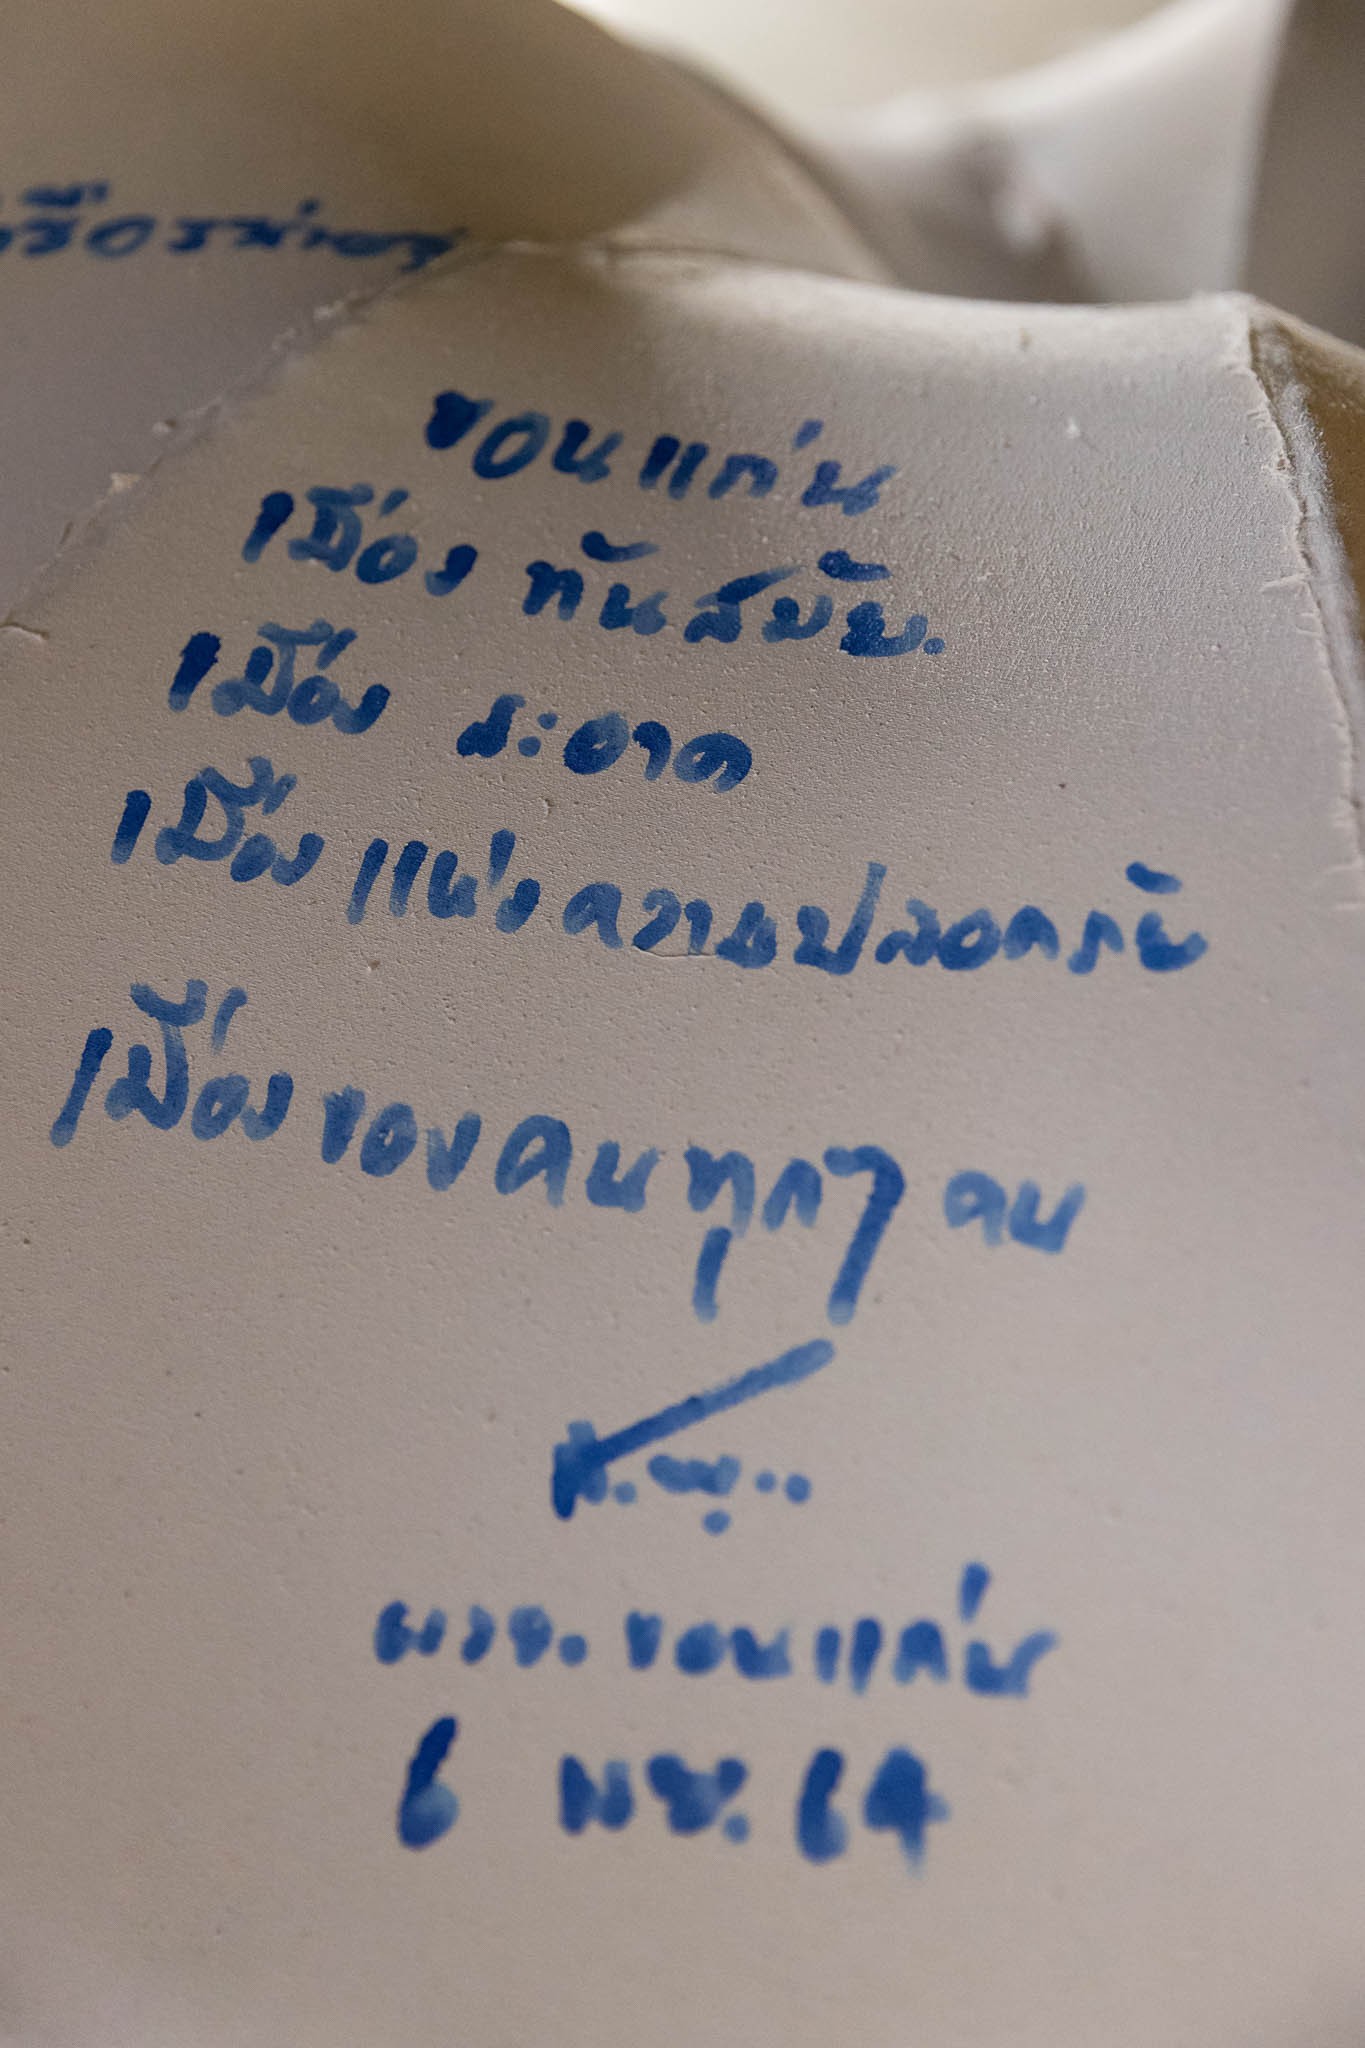 ขอนแก่น
เมือง ทันสมัย.
เมือง สะอาด
เมือง แห่งความปลอดภัย
เมืองของคนทุกๆ คน
ผวจ. ขอนแก่น
6 พย. 64